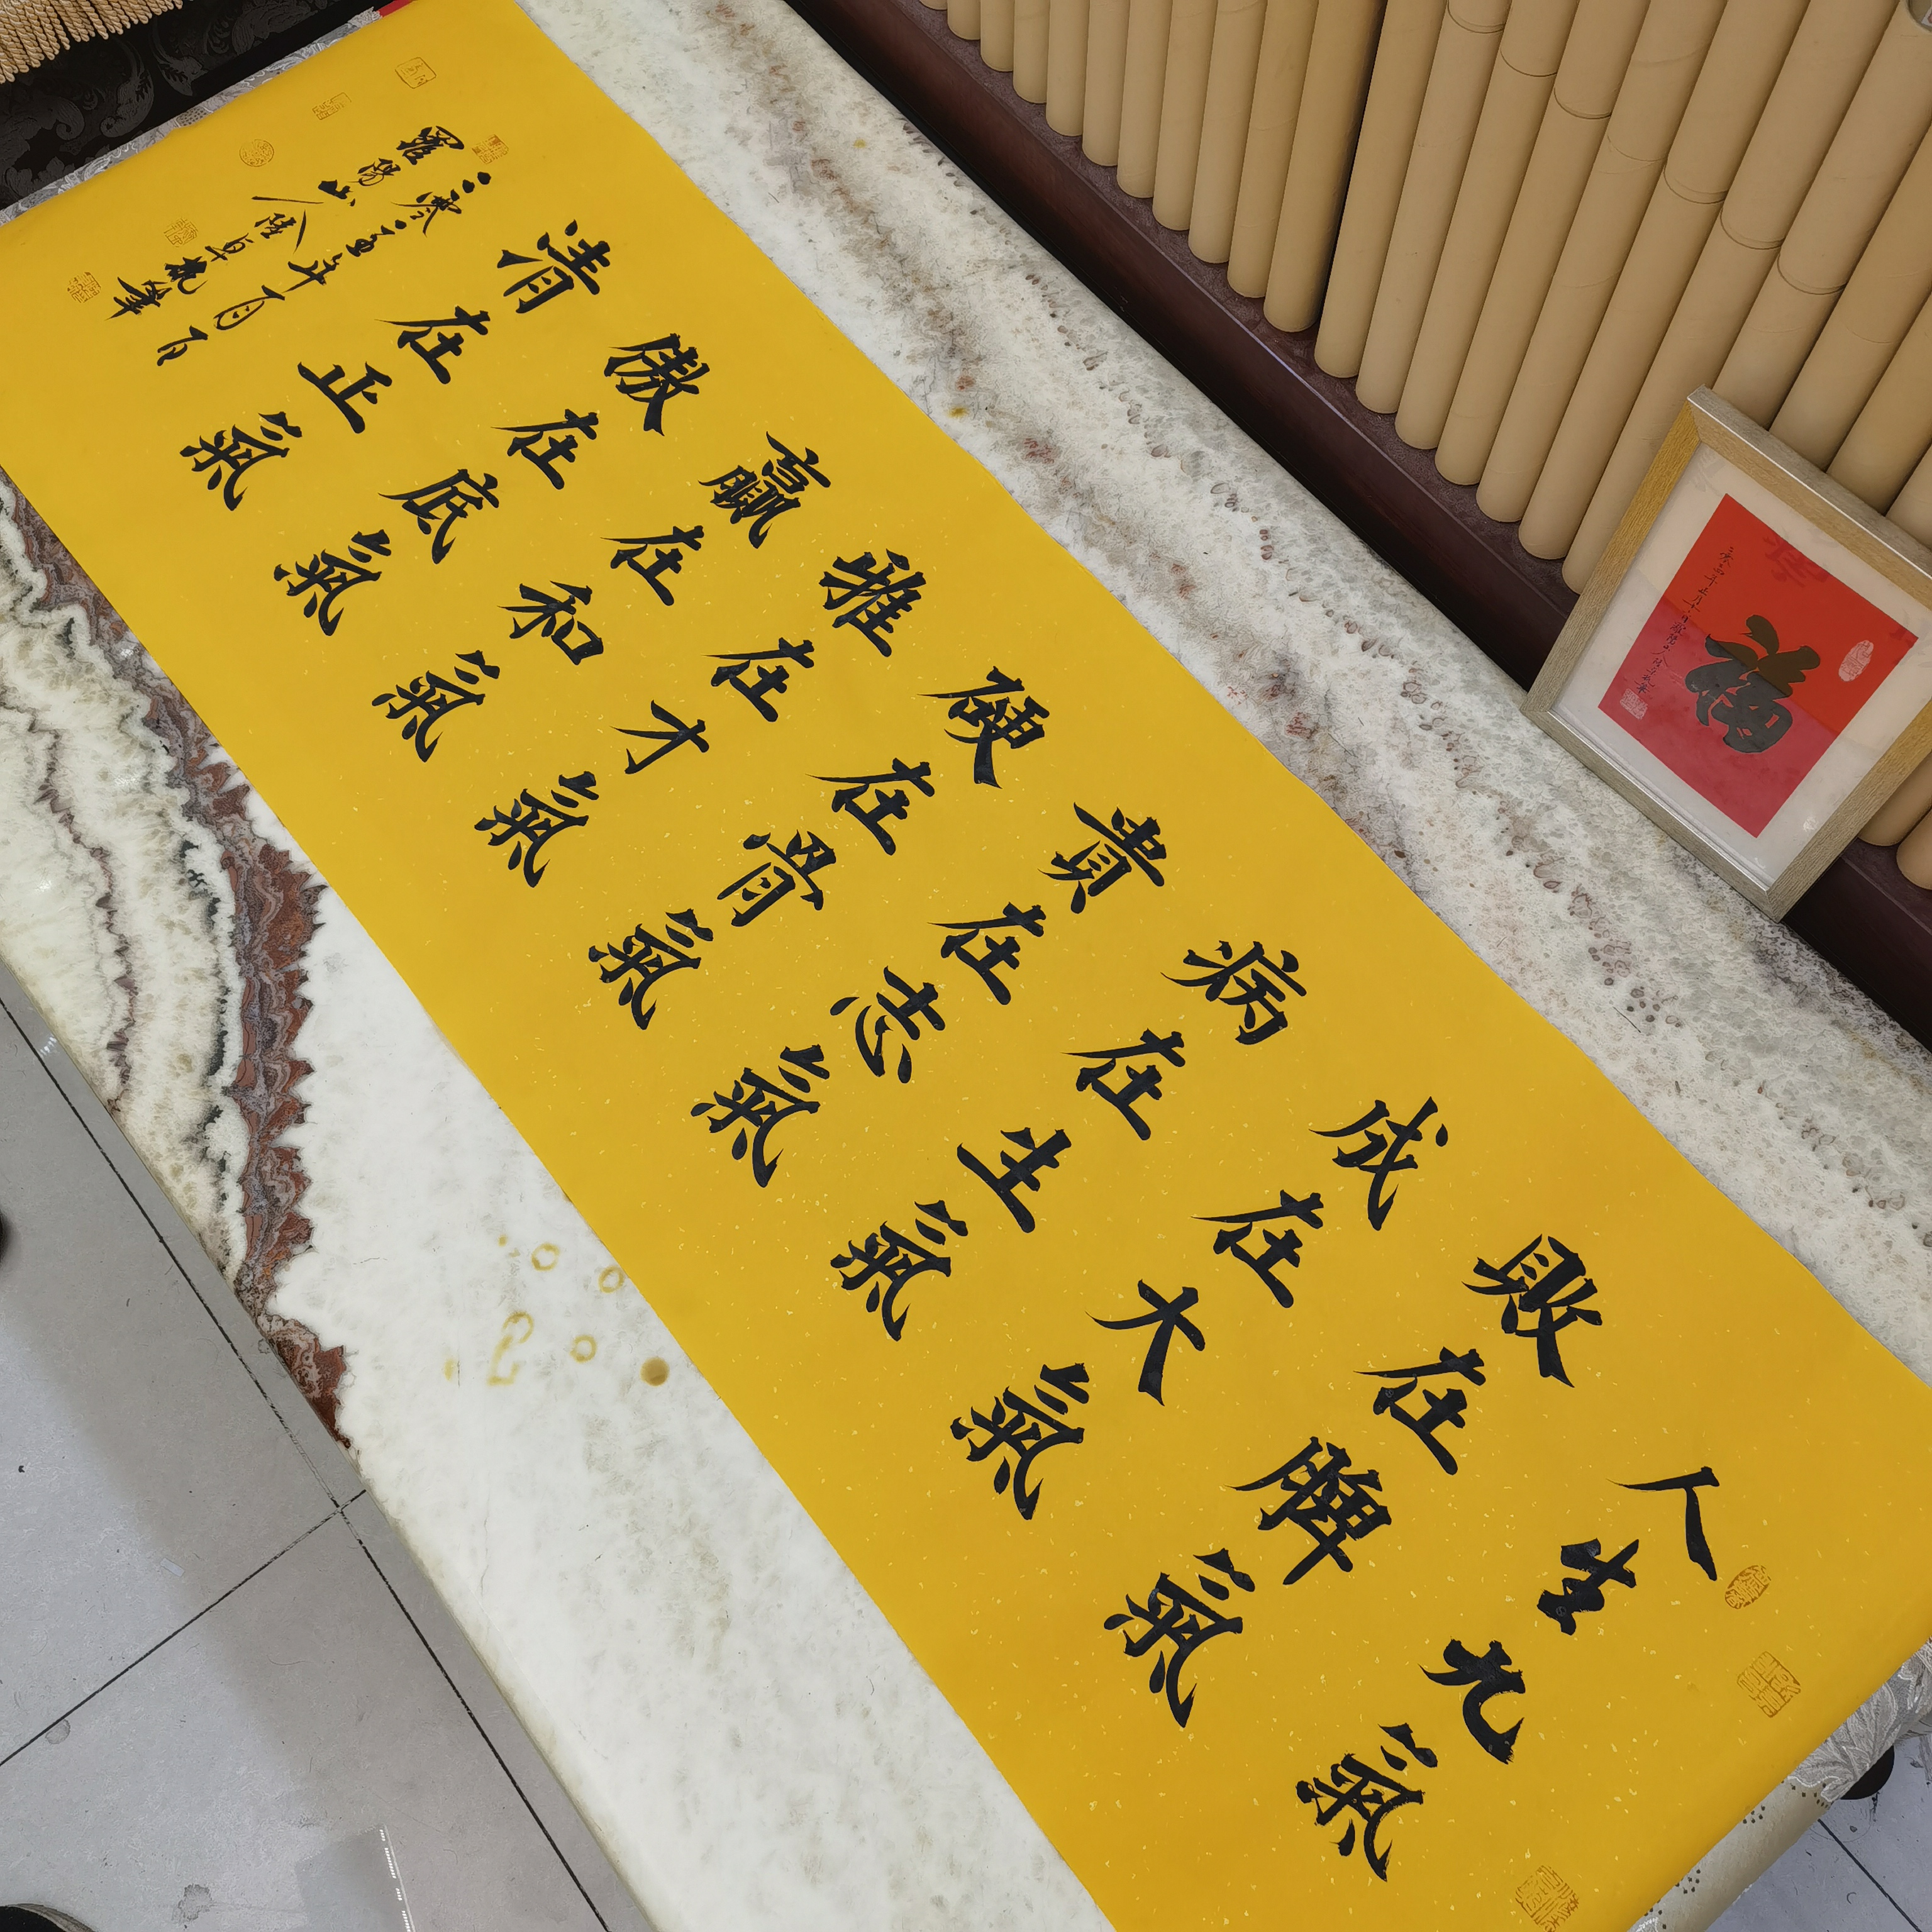 人生九氣
敗在脾氣
成在大氣
病在生氣
貴在志氣
硬在骨氣
雅在才氣
贏在和氣
傲在底氣
清在正氣
二零二五年
羅陽山人陸卓執筆
福